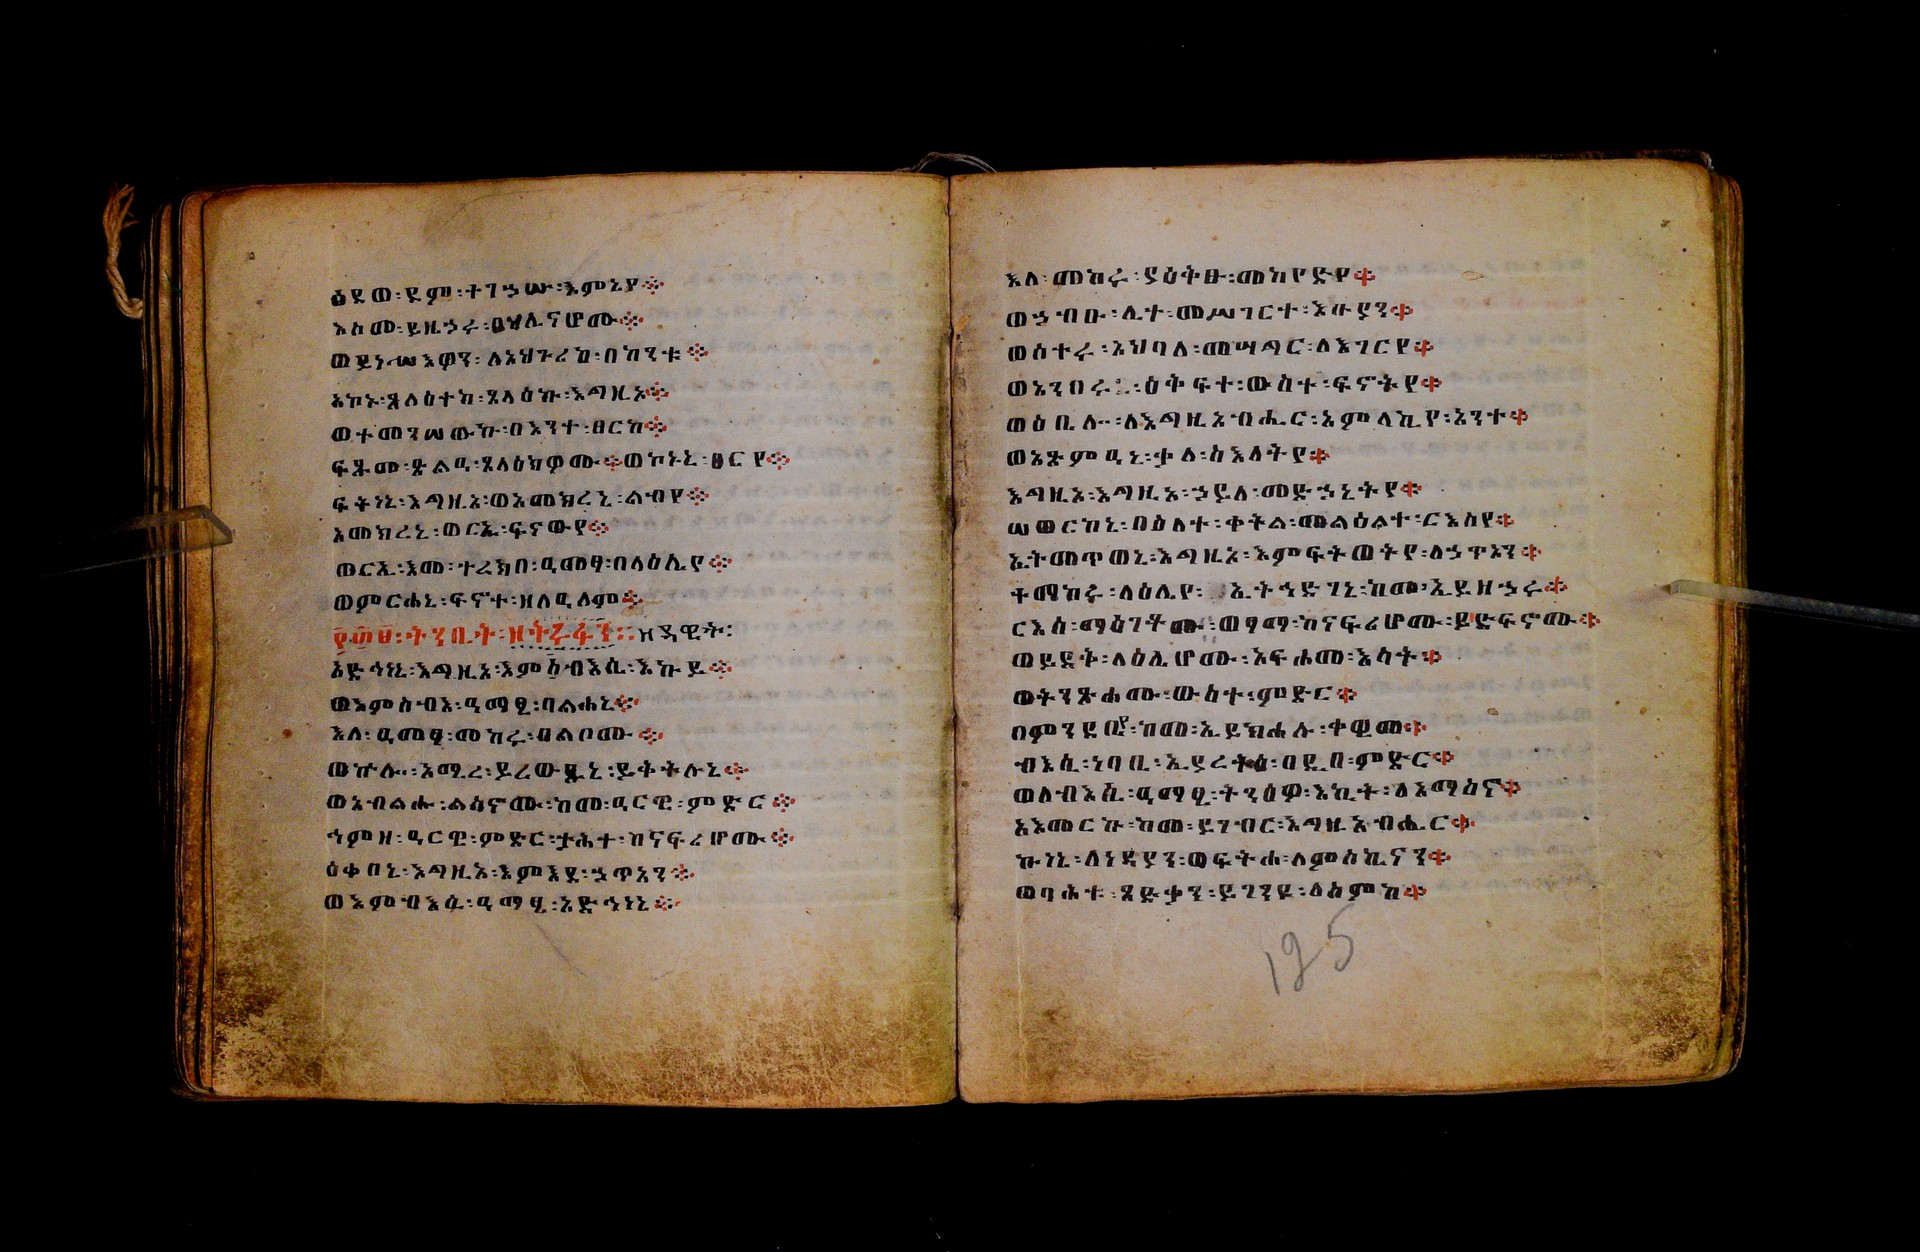 ዕደወ፡ ደም፡ ተገኃሡ፡ እምኔየ።
እስመ፡ ይዜኃሩ፡ በሃሊናሆሙ።
ወይነሥእዎን፡ ለአህጉረከ፡ በከንቱ።
አኮኑ፡ ጸላዕተከ፡ ጸላዕኩ፡ እግዚኦ።
ወተመንሠውኩ፡ በእንተ፡ ፀርከ።
ፍጹመ፡ ጽልዒ፡ ጸላዕክዎሙ። ወኮኑኒ፡ ፀርየ።
ፍትነኒ፡ እግዚኦ፡ ወአመክረኒ፡ ልብየ።
አመክረኒ፡ ወርኢ፡ ፍናውየ።
ወርኢ፡ እመ፡ ተረክበ፡ ዓመፃ፡ በላዕሌየ።
ወምርሐኒ፡ ፍኖተ፡ ዘለዓለም።
፻፴፱፡ ትንቢት፡ ዘትረፋን፡ ዘዳዊት፡
አድኅነኒ፡ እግዚኦ፡ እምዕብእሲ፡ እኩይ።
ወእምስብእ፡ ዓማፂ፡ ባልሐኒ።
እለ፡ ዓመፃ፡ መከሩ፡ በልቦሙ።
ወኵሉ፡ አሚረ፡ ይረውጹኒ፡ ይቅትሉኒ።
ወአብልሑ፡ ልሳኖሙ፡ ከመ፡ ዓርዌ፡ ምድር።
ኅምዘ፡ ዓርዌ፡ ምድር፡ ታሕተ፡ ከናፍሪሆሙ።
ዕቀበኒ፡ እግዚኦ፡ እምእደ፡ ኃጥአን።
ወእምብእሲ፡ ዓማፂ፡ አድኅነኒ።
እለ፡ መከሩ፡ ያዕትፁ፡ መከየድየ።
ወኃብዑ፡ ሊተ፡ መሥገርተ፡ እዙያን።
ወሰተሩ፡ አህባለ፡ መሣግር፡ ለእገርየ።
ወአንበሩ፡ ዕቅፍተ፡ ውስተ፡ ፍኖትየ።
ወዕቢሎ፡ ለእግዚአብሔር፡ አምላኪየ፡ አንተ።
ወአጽምዓኒ፡ ቃለ፡ ስእለትየ።
እግዚኦ፡ እግዚኦ፡ ኃይለ፡ መድኃኒትየ።
ሠወርከኒ፡ በዕለተ፡ ቀትል፡ መልዕልተ፡ ርእስየ።
ኢትመጥወኒ፡ እግዚኦ፡ እምፍትወትየ፡ ለኃጥአን።
ተማከሩ፡ ላዕሌየ፡ ኢትኅድገኒ፡ ከመ፡ ኢይዘኃሩ።
ርእሰ፡ ማዕገቶሙ፡ ወፃማ፡ ከናፍሪሆሙ፡ ይድፍኖሙ።
ወይደቅ፡ ላዕሌሆሙ፡ አፍሐመ፡ እሳት።
ወትንጽሖሙ፡ ውስተ፡ ምድር።
በምንዳቤ፡ ከመ፡ ኢይክሐሉ፡ ቀዊመ።
ብእሲ፡ ነባቢ፡ ኢያረትዕ፡ በዲበ፡ ምድር።
ወለብእሲ፡ ዓማፂ፡ ትንዕዎ፡ እኪት፡ ለአማስኖ።
አአመርኩ፡ ከመ፡ ይገብር፡ እግዚአብሔር።
ኵነኔ፡ ለነዳያን፡ ወፍትሐ፡ ለምስኪናን።
ወባሕቱ፡ ጻድቃን፡ ይገንዩ፡ ለስምከ።
125